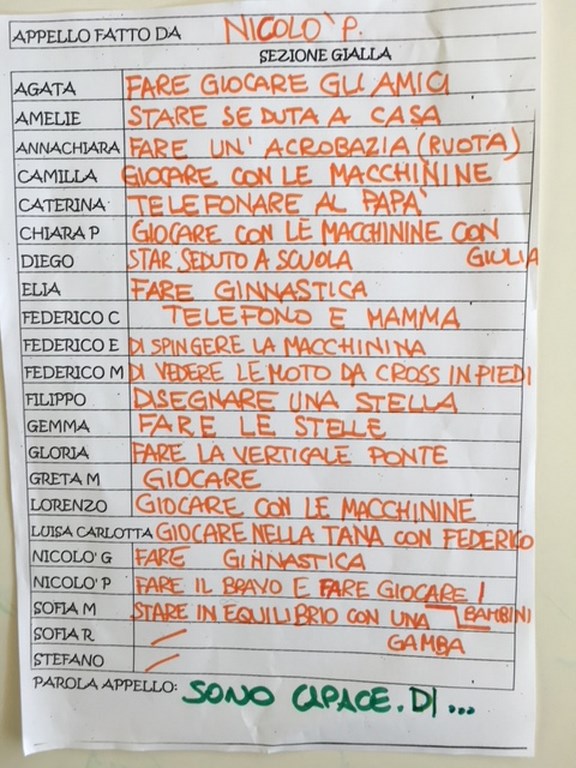 APPELLO FATTO DA NICOLO' P.
SEZIONE GIALLA
AGATA FARE GIOCARE GLI AMICI
AMELIE STARE SEDUTA A CASA
ANNACHIARA FARE UN' ACROBAZIA (RUOTA)
CAMILLA GIOCARE CON LE MACCHININE
CATERINA TELEFONARE AL PAPA'
CHIARA P GIOCARE CON LE MACCHININE CON
GIULIA
DIEGO STAR SEDUTO A SCUOLA
ELIA FARE GINNASTICA
FEDERICO C TELEFONO E MAMMA
FEDERICO E DI SPINGERE LA MACCHININA
FEDERICO M DI VEDERE LE MOTO DA CROSS IN PIEDI
FILIPPO DISEGNARE UNA STELLA
GEMMA FARE LE STELLE
GLORIA FARE LA VERTICALE PONTE
GRETA M GIOCARE
LORENZO GIOCARE CON LE MACCHININE
LUISA CARLOTTA GIOCARE NELLA TANA CON FEDERICO
NICOLO' G FARE GINNASTICA
NICOLO' P FARE IL BRAVO E FARE GIOCARE I
BAMBINI
SOFIA M STARE IN EQUILIBRIO CON UNA
GAMBA
SOFIA R /
STEFANO /
PAROLA APPELLO: SONO CAPACE. DI ...